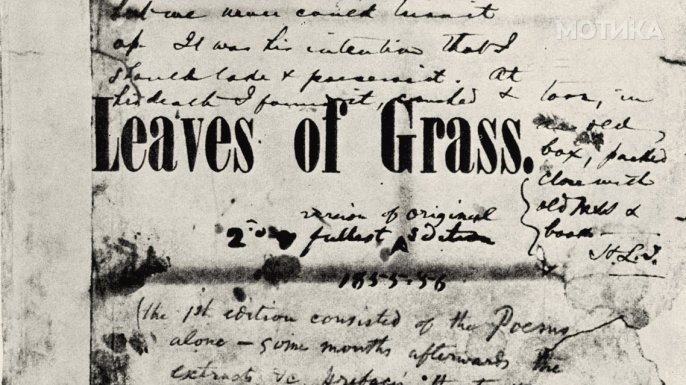 but we never could turn it
МОТИКА
up. It was his intention that I
should take & preserve it. At
his death I found it, crushed & torn, in
an old
Leaves of Grass.
box, packed
close with
old MSS &
books—
H. L. T.
version of original
2nd & fullest Edition
1855-56
(the 1st edition consisted of the Poems
alone — some months afterwards the
extracts &c prefac